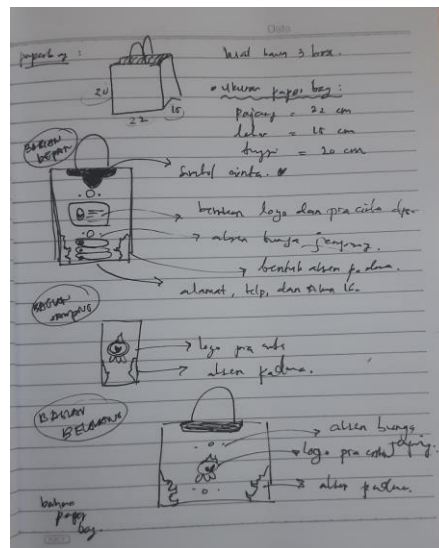 Date
paperbag :
buat bawa 3 box.
20
• Ukuran paper bag :
22
15
panjang = 22 cm
lebar = 15 cm
tinggi = 20 cm
BAGIAN DEPAN
Simbol cinta.
berikan logo dan pra cinta
aksen bunga jepung.
bentuk aksen padma.
alamat, telp, dan IG.
BAGIAN SAMPING
logo pra
aksen padma.
BAGIAN BELAKANG
aksen bunga
logo pra cinta
aksen padma.
bahan
paper
bag.